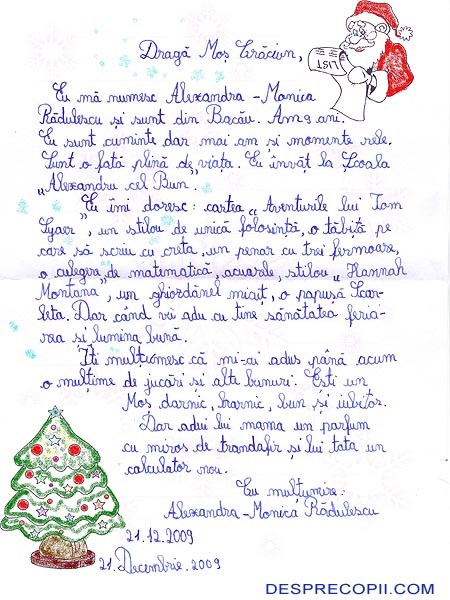 Dragă Moș Crăciun,
LIST
Eu mă numesc Alexandra-Monica
Rădulescu și sunt din Bacău. Am 9 ani.
Eu sunt cuminte dar mai am și momente rele.
Sunt o fată plină de viață. Eu învăț la Școala
"Alexandru cel Bun.
"Eu îmi doresc: cartea "Aventurile lui Tom
Syaer", un stilou de unică folosință, o tăbiță pe
care să scriu cu creta, un penar cu trei fermoare,
o culegere de matematică, acuarele, stilou "Hannah
Montana", un ghiozdănel micuț, o papușă Scar-
leta. Dar când vii adu cu tine sănătatea feria-
rea și lumina bună.
Iți mulțiomesc că mi-ai adus până acum
o mulțime de jucări si alte bunuri. Ești un
Moș darnic, harnic, bun și iubitor.
Dar adui lui mama un parfum
cu miros de trandafir și lui tata un
calculator nou.
Cu mulțumire:
Alexandra-Monica Rădulescu
21.12.2009
21.Decembrie.2009
DESPRECOPII.COM